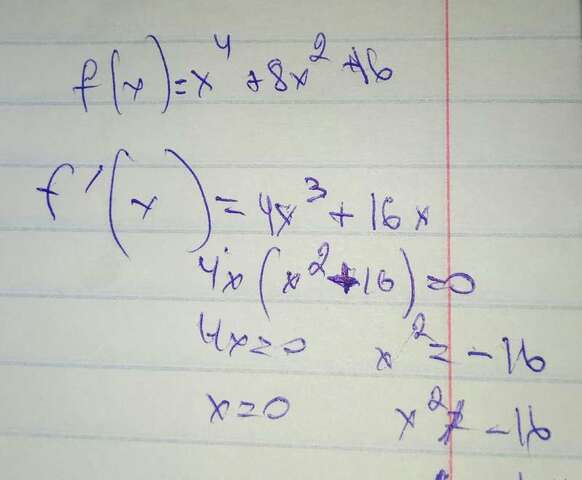 f(x)=x⁴+8x²+16
f'(x)=4x³+16x
4x(x²+16)=0
4x=0 x²=-16
x=0 x²≠-16